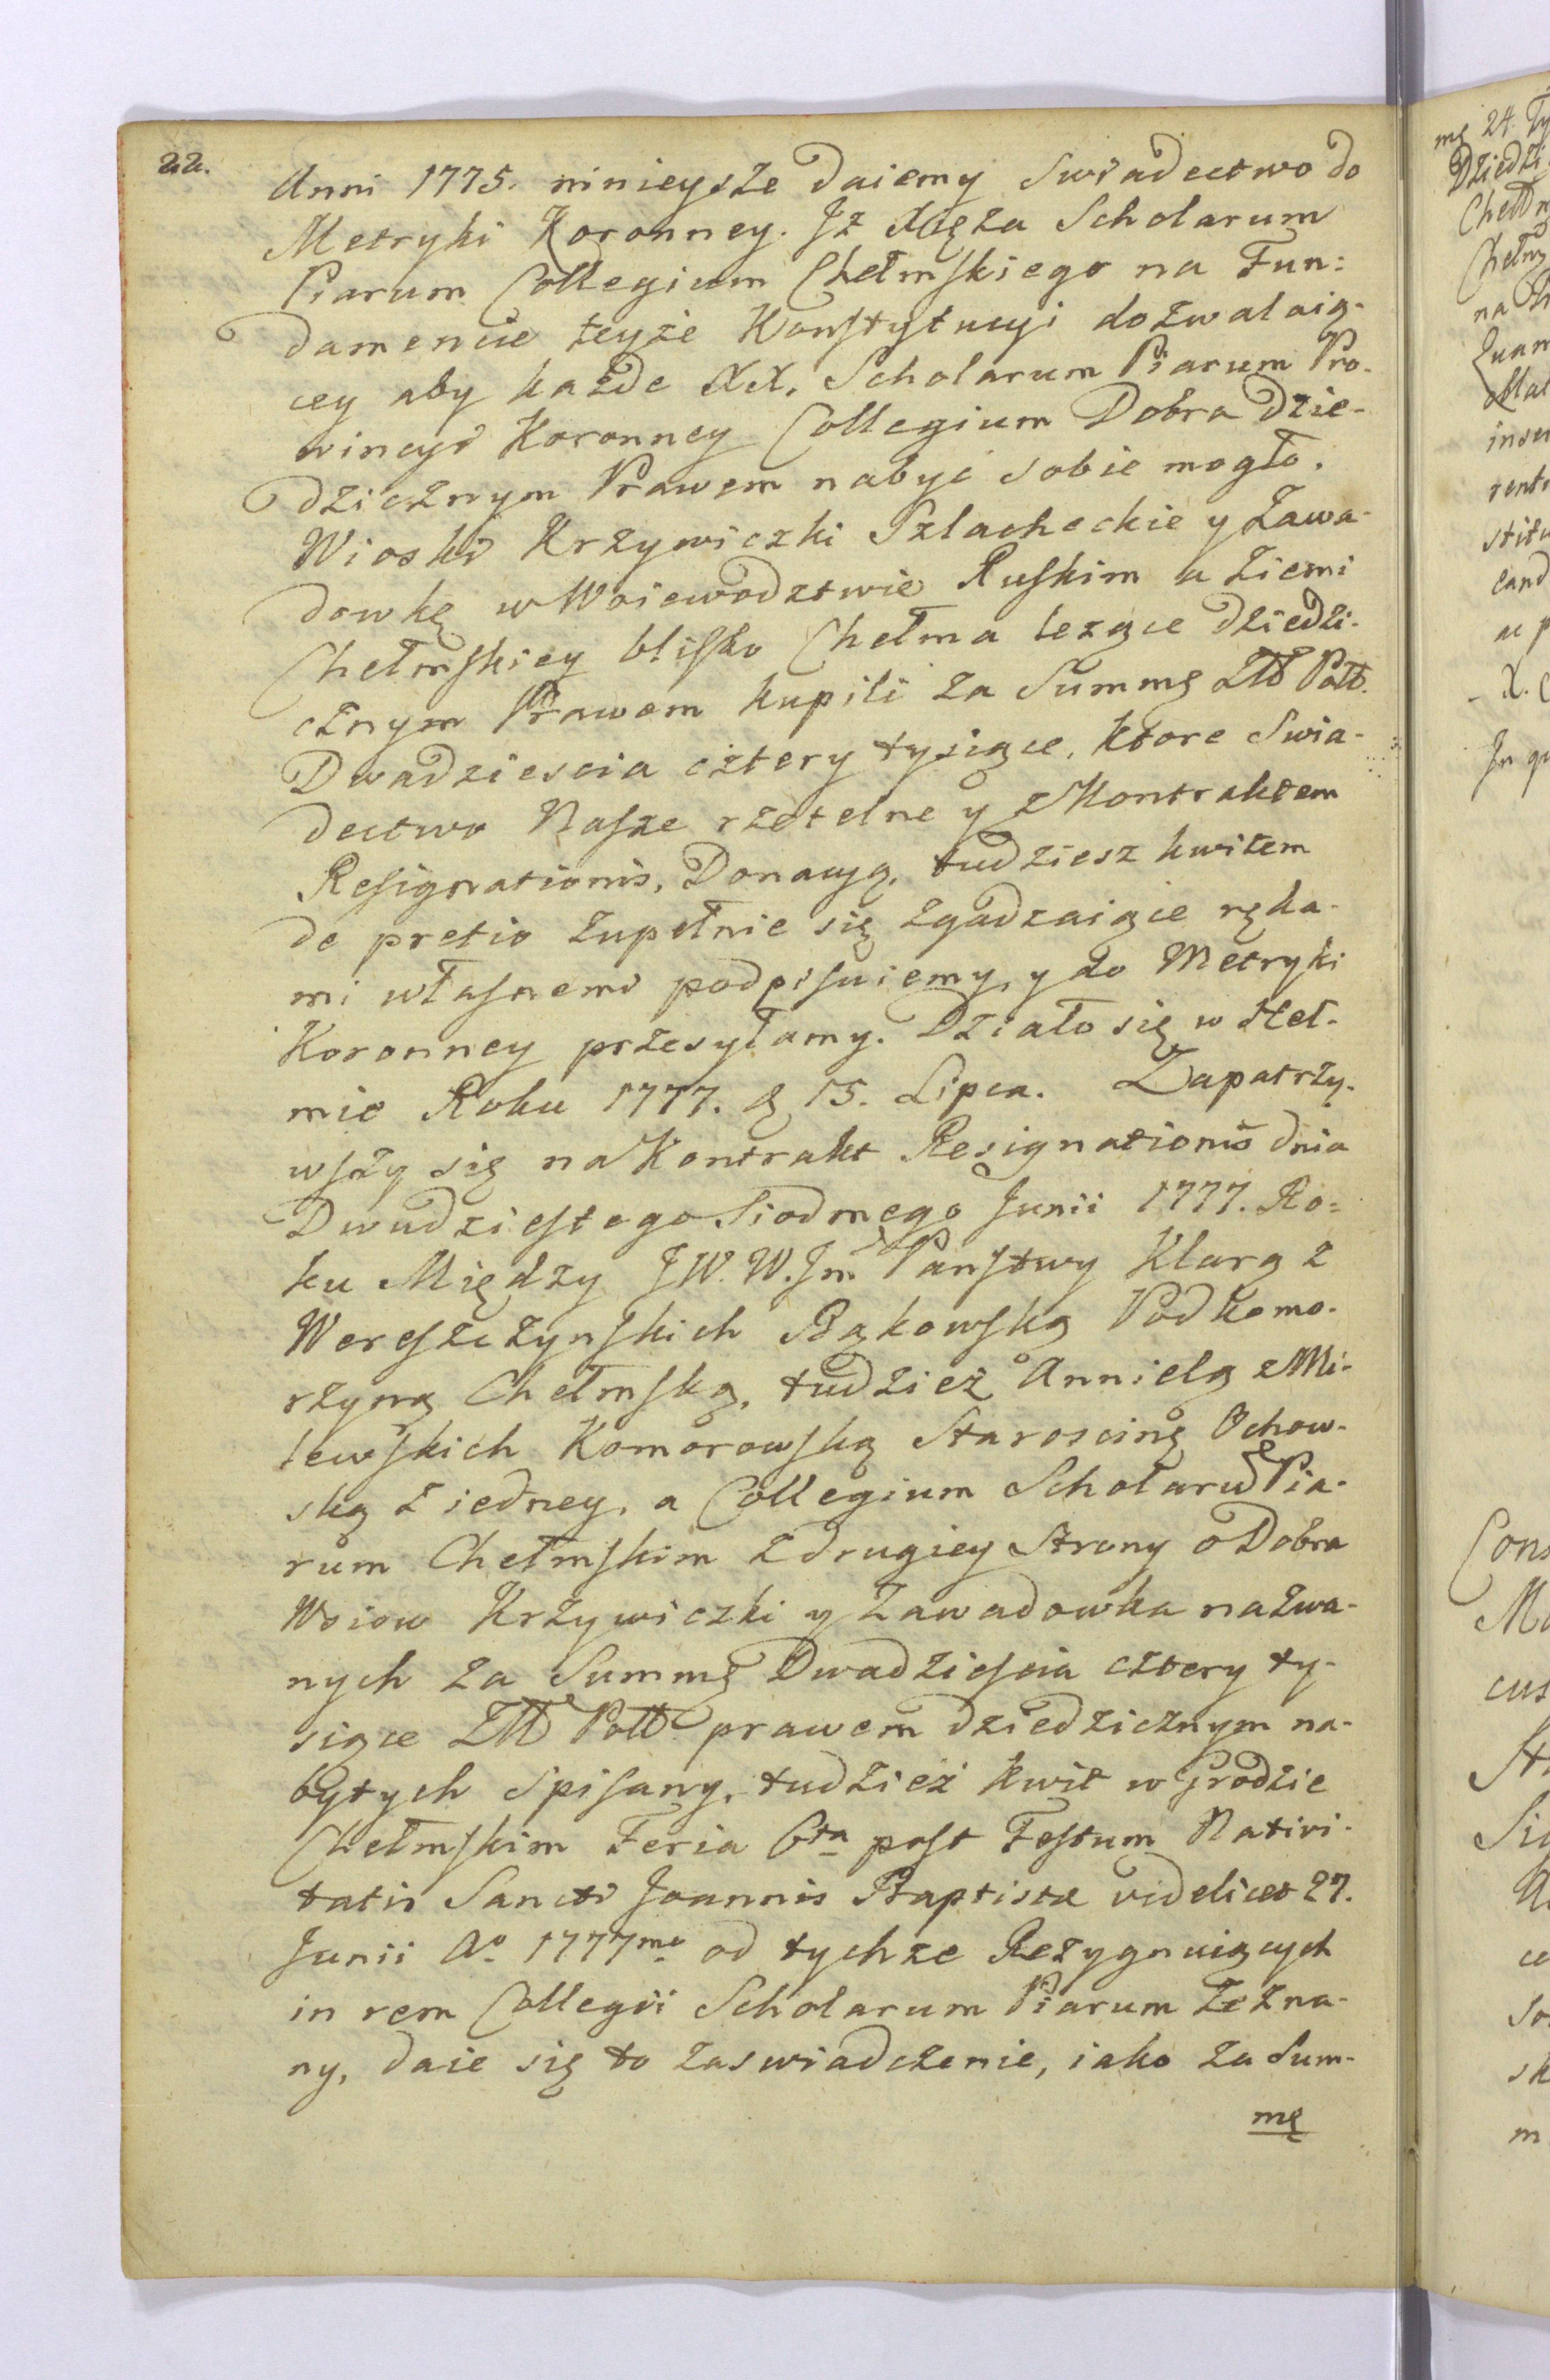 22.
Anni 1775. ninieysze daiemy Swiadectwo do
Metryki Koronney. Jż Xięża Scholarum
Piarum Collegium Chełmskiego na Fun:
damencie teyże Konstytucyi dozwalaią-
cey aby każde XX. Scholarum Piarum Pro-
wincyi Koronney Collegium Dobra Dzie-
dzicznym Prawem nabyć sobie mogło.
Wioski Krzywiczki Szlacheckie y Zawa-
dowkę w Woiewodztwie Ruskim a Ziemi
Chełmskiey blisko Chełma leżące dziedzi-
cznym Prawem kupili za Summę Złł Poll.
Dwadziescia cztery tysiące, ktore Swia-
dectwo Nasze rzetelne y z Kontraktem
Resignationis, Donacyą, tudziesz kwitem
de pretio zupełnie się zgadzaiące ręka-
mi własnemi podpisuiemy, y do Metryki
Koronney przesyłamy. Działo się w Heł-
mie Roku 1777. d 15. Lipca. Zapatrzy-
wszy się na Kontrakt Resignationis dnia
Dwudziestego Siodmego Junii 1777. Ro-
ku Między JW. W. Jm Panstwy Klarą z
Wereszczynskich Bąkowską Podkomo-
rzyną Chełmską, tudzież Annielą z Mi-
lewskich Komorowską Starosciną Ochow-
ską z iedney, a Collegium Scholarum Pia-
rum Chełmskim z drugiey Strony o Dobra
Wsiow Krzywiczki y Zawadowka nazwa-
nych za Summę Dwadziescia cztery ty-
siące Złł Poll prawem dziedzicznym na-
bytych Spisany, tudzież kwit w Grodzie
Chełmskim Feria 6ta post Festum Nativi-
tatis Sancti Joannis Baptistæ videlicet 27.
Junii Ao 1777mo od tychże Rezygnuiących
in rem Collegii Scholarum Piarum zezna-
ny, daie się to zaswiadczenie, iako za Sum-
mę